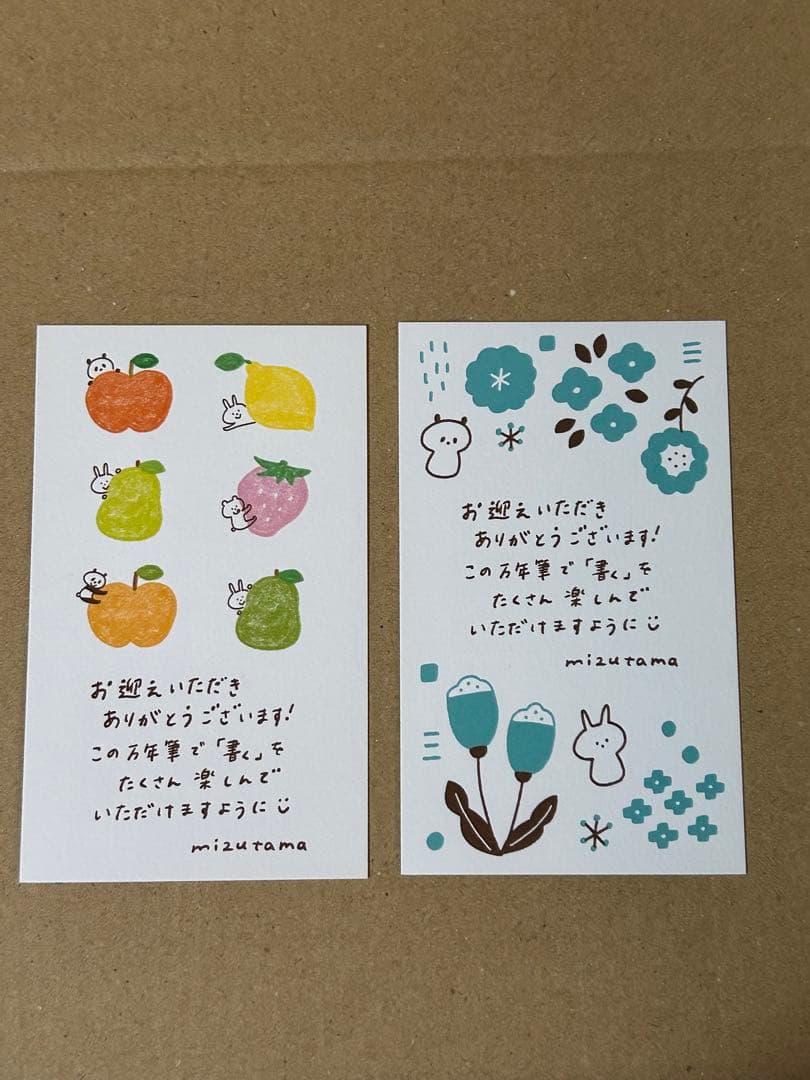 お迎えいただき
ありがとうございます!
この万年筆で「書く」を
たくさん楽しんで
いただけますように
mizutama
お迎えいただき
ありがとうございます!
この万年筆で「書く」を
たくさん楽しんで
いただけますように
mizutama